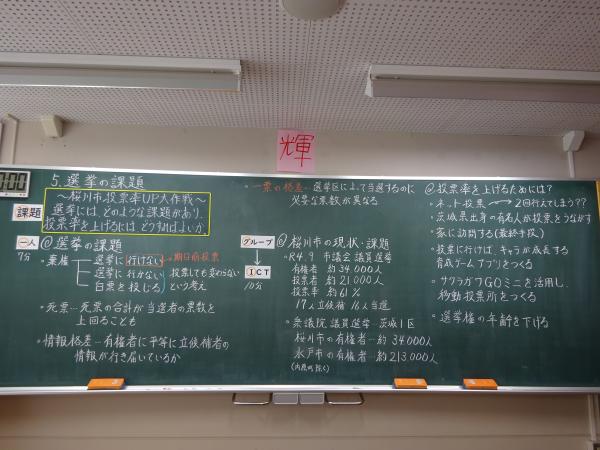 輝
0:00
5. 選挙の課題
課題
〜桜川市投票率UP大作戦〜
選挙には、どのような課題があり、
投票率を上げるには、どうすればよいか。
一人
7分
@選挙の課題
・棄権
選挙に行けない → 期日前投票
選挙に行かない
白票を投じる
投票しても変わらない
という考え
・死票…死票の合計が当選者の票数を
上回ることも
・情報格差…有権者に平等に立候補者の
情報が行き届いているか
・一票の格差…選挙区によって当選するのに
必要な票数が異なる
グループ
↓
ICT
10分
@桜川市の現状・課題
・R4.9 市議会議員選挙
有権者 約34,000人
投票者 約21,000人
投票率 約61%
17人立候補 16人当選
・衆議院議員選挙…茨城1区
桜川市の有権者…約34,000人
水戸市の有権者…約213,000人
@投票率を上げるためには?
・ネット投票 → 2回行えてしまう??
・茨城県出身の有名人が投票をうながす
・家に訪問する(最終手段)
・投票に行けば、キャラが成長する
育成ゲームアプリをつくる
・サクラガワGOミニを活用し、
移動投票所をつくる
・選挙権の年齢を下げる